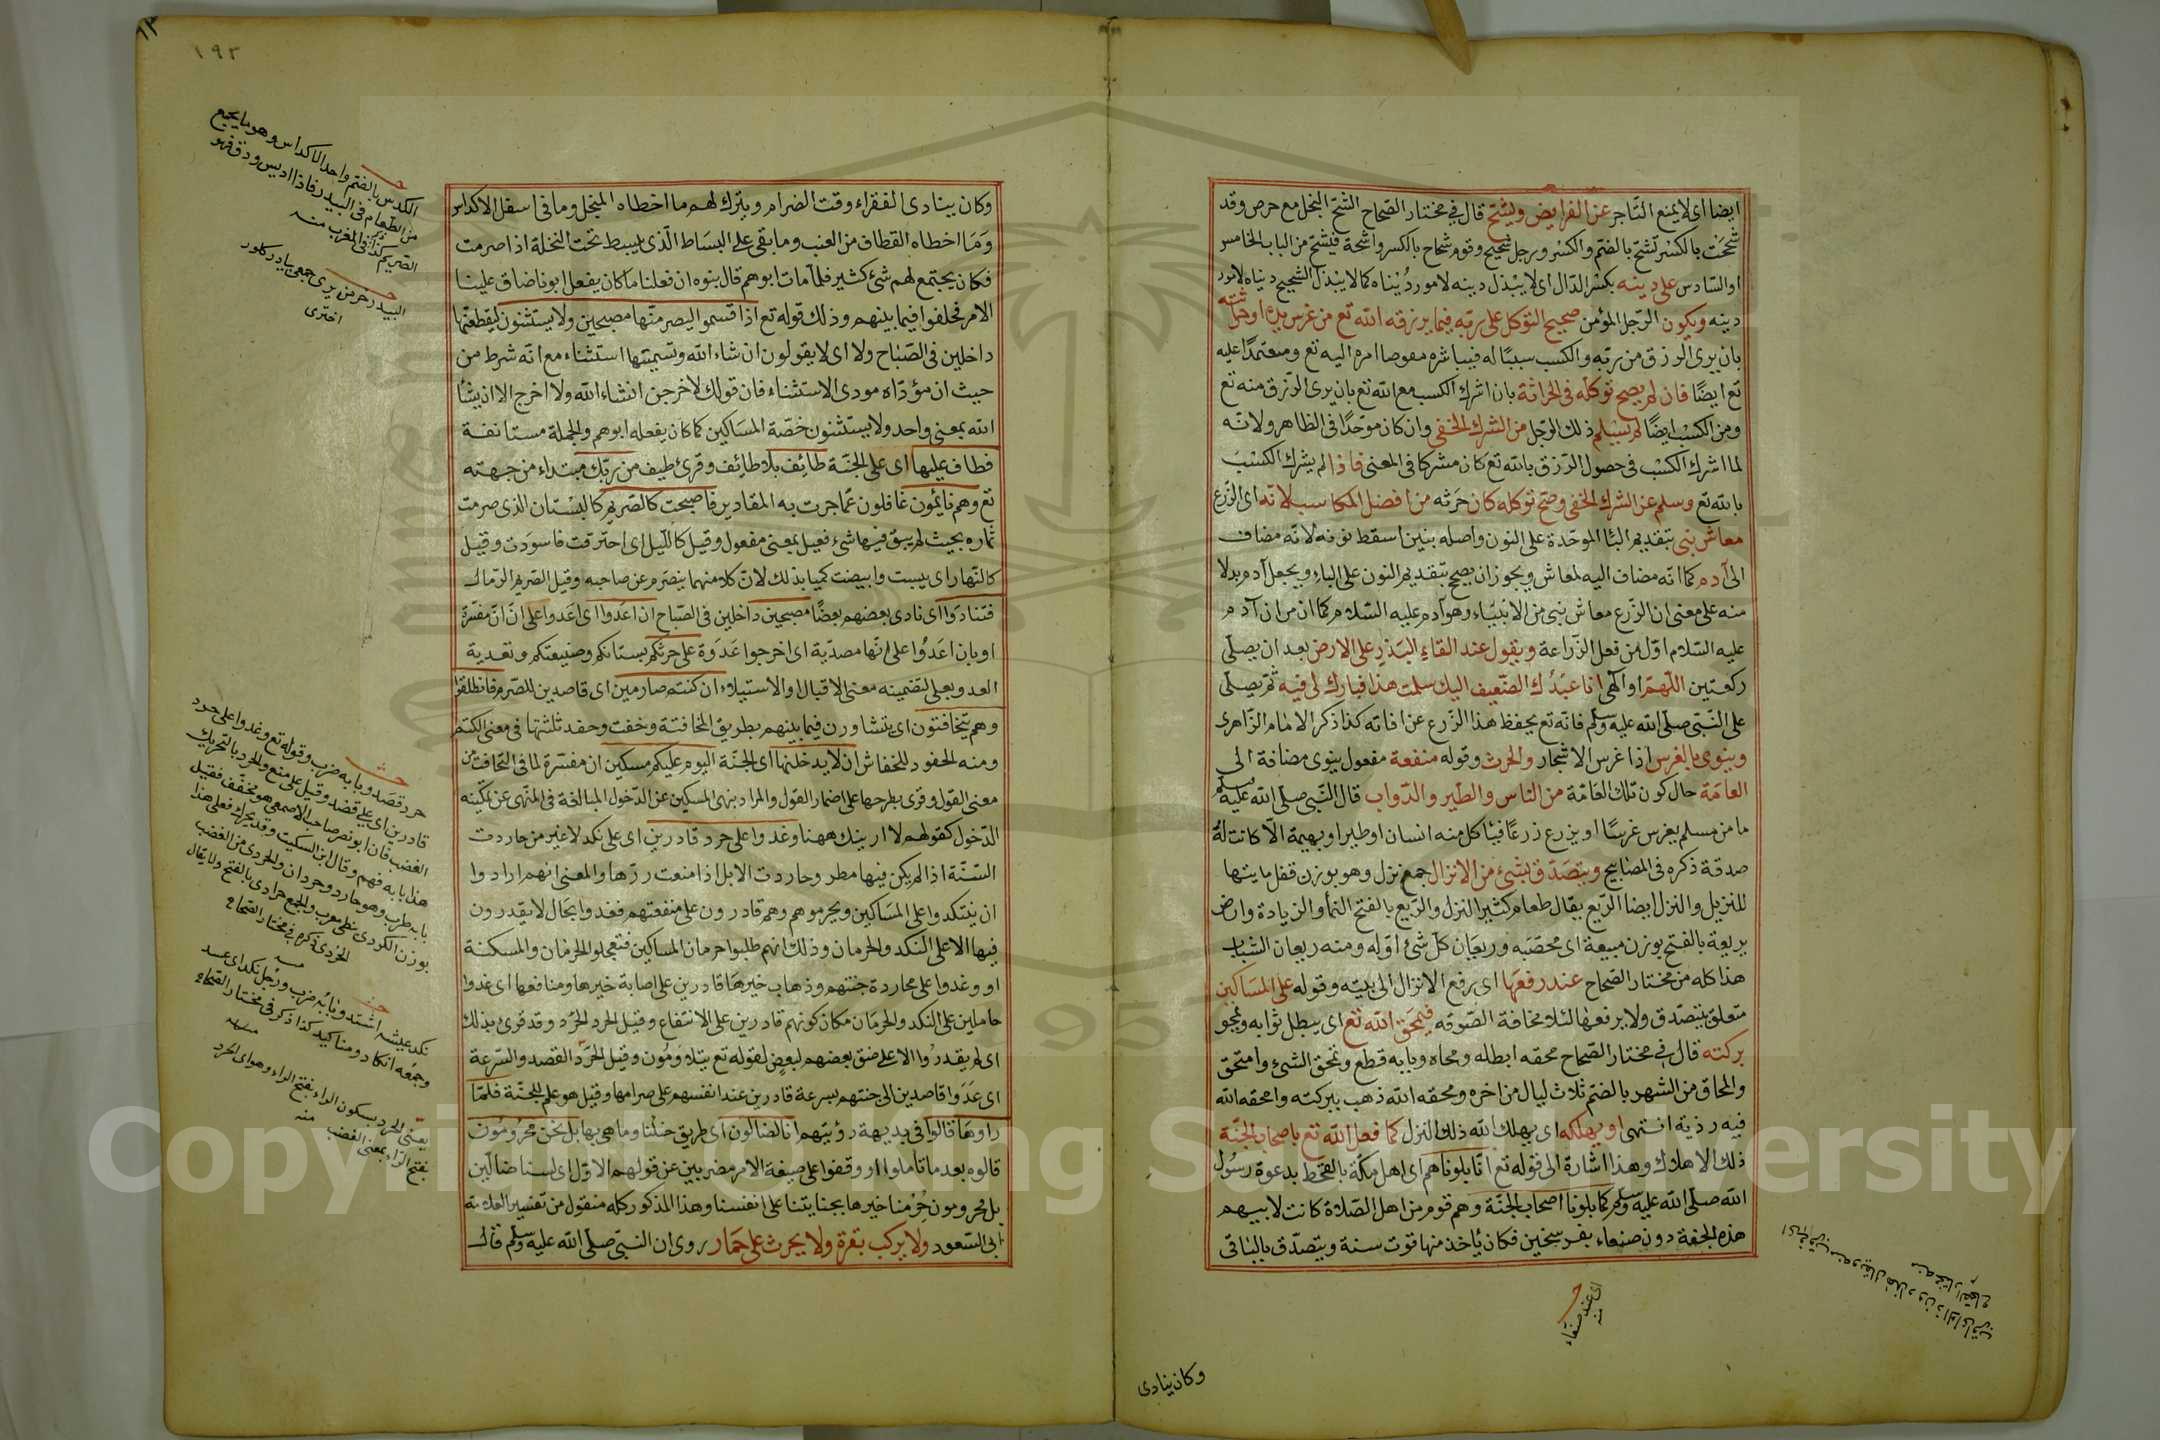 ايضا اى لا يمنع التاجر عن الفرايض ويشح قال فى مختار الصحاح الشح البخل مع حرص وقد
شححت بالكسر تشح بالفتم والكسر ورجل شحيح وقوم شحاح بالكسر واشحة فيشح من الباب الخامس
او السادس على دينه بكسر الدال اى لا يبذل دينه لامور دنياه كما لا يبذل الشحيح دنياه لامور
دينه ويكون الرجل المؤمن صحيح التوكل على ربه فيما يرزقه الله تع من غرس يده او حراثته
بان يرى الرزق من ربه والكسب سببا له فيباشره مفوضا امره اليه تع ومعتمدا عليه
تع ايضًا فان لم يصح توكله فى الحراثة بان اشرك الكسب مع الله تع بان يرى الرزق منه تع
ومن الكسب ايضًا لم يسلم ذلك الرجل من الشرك الخفى وان كان موحدًا فى الظاهر ولانه
لما اشرك الكسب فى حصول الرزق بالله تع كان مشركا فى المعنى فاذا لم يشرك الكسب
بالله تع وسلم عن الشرك الخفى وصح توكله كان حرثه من افضل المكاسب لانه اى الزرع
معاش بنى بتقديم البا الموحدة على النون واصله بنين اسقط نونه لانه مضاف
الى آدم كما انه مضاف اليه لمعاش ويجوز ان يصح بتقديم النون على الباء ويجعل آدم بدلا
منه على معنى ان الزرع معاش نبى من الانبياء وهو آدم عليه السلام كما ان مران آدم
عليه السلام اول من فعل الزراعة ويقول عند القاء البذر على الارض بعد ان يصلى
ركعتين اللهم او الهى انا عبدك الضعيف اليك سلمت هذا فبارك لى فيه ثم يصلى
على النبى صلى الله عليه وسلم فانه تع يحفظ هذا الزرع عن افاته كذا ذكر الامام الزاهرى
وينوى بالغرس اذا غرس الاشجار والحرث وقوله منفعة مفعول ينوى مضافة الى
العامة حال كون تلك العامة من الناس والطير والدواب قال النبى صلى الله عليه وسلم
ما من مسلم يغرس غرسا او يزرع زرعًا فياكل منه انسان او طير او بهيمة الا كانت له
صدقة ذكره فى المصابيح ويتصدق بشئ من الانزال جمع نزل وهو بوزن قفل ما يتهيا
للنزيل والنزل ايضا الريع يقال طعام كثير النزل والريع بالفتح النمأ والزيادة وارض
مريعة بالفتح بوزن مبيعة اى مخصبه وريعان كل شئ اوله ومنه ريعان الشباب
هذا كله من مختار الصحاح عند رفعها اى رفع الانزال الى بيته وقوله على المساكين
متعلق بيتصدق ولا يرفعها لئلا مخافة الصوقه فيمحق الله تع اى يبطل ثوابه ويمحو
بركته قال فى مختار الصحاح محقه ابطله ومحاه وبابه قطع وتمحق الشئ وامتحق
والمحاق من الشهر بالضم ثلاث ليال من اخره ومحقه الله ذهب ببركته وامحقه الله
فيه رذية انتهى او يهلكه اى يهلك الله ذلك النزل كما فعل الله تع باصحاب الجنة
ذلك الاهلاك وهذا اشارة الى قوله تع انا بلوناهم اى اهل مكة بالقحط بدعوة رسول
الله صلى الله عليه وسلم كما بلونا اصحاب الجنة وهم قوم من اهل الصلاة كانت لابيهم
هذه الجنة دون صنعاء بفرسخين فكان يأخذ منها قوت سنة ويتصدق بالباقى
اى عند صنعاء
منه
وكان ينادى
١٩٣
وكان ينادى الفقراء وقت الصرام ويترك لهم ما اخطاه المنجل وما فى اسفل الاكداس
وما اخطاه القطاف من العنب وما بقى على البساط الذى يبسط تحت النخلة اذا صرمت
فكان يجتمع لهم شئ كثير فلما مات ابوهم قال بنوه ان فعلنا ما كان يفعل ابونا ضاق علينا
الامر فحلفوا فيما بينهم وذلك قوله تع اذا قسموا ليصرمنها مصبحين ولا يستثنون ليقطعنها
داخلين فى الصباح ولا اى لا يقولون ان شاء الله وتسميتها استثناء مع انه شرط من
حيث ان مؤداه مودى الاستثناء فان قولك لاخرجن انشاء الله ولا اخرج الا ان يشأ
الله بمعنى واحد ولا يستثنون خصة المساكين كما كان يفعله ابوهم والجملة مستانفة
فطاف عليها اى على الجنة طائف بلا طائف وقرئ طيف من ربك مبتداء من جهته
تع وهم نايمون غافلون عما جرت به المقادير فاصبحت كالصريم كالبستان الذى صرمت
ثماره بحيث لم يبق فيها شئ فعيل بمعنى مفعول وقيل كالليل اى احترقت فاسودت وقيل
كالنهار اى يبست وابيضت كميا بذلك لان كلا منهما ينصرم عن صاحبه وقيل الصريم الرمال
فتنادوا اى نادى بعضهم بعضًا مصبحين داخلين فى الصباح ان اغدوا اى اغدوا على ان ان مفسرة
او بان اغدوا على انها مصدية اى اخرجوا غدوة على حرثكم بستانكم وضيعتكم وتعدية
الغدو بعلى لتضمينه معنى الاقبال او الاستيلاء ان كنتم صارمين اى قاصدين للصرم فانطلقوا
وهم يتخافتون اى يتشاورن فيما بينهم بطريق المخافتة وخفت وخفد ثلثتها فى معنى الكتم
ومنه الخفود للخفاش ان لا يدخلنها اى الجنة اليوم عليكم مسكين ان مفسرة لما فى التخافت من
معنى القول وقرى بطرحها على اضمار القول والمراد بنهى المسكين عن الدخول المبالغة فى النهى عن تمكينه
الدخول كقولهم لا ارينك ههنا وغدوا على حرد قادرين اى على نكد لا غير من حاردت
السنة اذا لم يكن فيها مطر وحاردت الابل اذا منعت درها والمعنى انهم ارادوا
ان يتنكدوا على المساكين ويحرموهم وهم قادرون على منفعتهم فغدوا بحال لا يقدرون
فيها الا على النكد والحرمان وذلك انهم طلبوا حرمان المساكين فتعجلوا الحرمان والمسكنة
او وغدوا على محاردة جنتهم وذهاب خيرها قادرين على اصابة خيرها ومنافعها اى غدوا
حاملين على النكد والحرمان مكان كونهم قادرين على الانتفاع وقيل الحرد الحرد وقد قرئ بذلك
اى لم يقدروا الا على حنق بعضهم لبعض لقوله تع يتلاومون وقيل الحرد القصد والسرعة
اى غدوا قاصدين الى جنتهم بسرعة قادرين عند انفسهم على صرامها وقيل هو علم للجنة فلما
راوها قالوا فى بديهة رؤيتهم انا لضالون اى طريق جنتنا وما هى بها بل نحن محرومون
قالوه بعد ما تاملوا او وقفوا على صيغة الامر مضربين عن قولهم الاول اى لسنا ضالين
بل محرومون حرمنا خيرها بجنايتنا على انفسنا وهذا المذكور كله منقول من تفسير العلامة
ابى السعود ولا يركب بقرة ولا يحرث على حمار روى ان النبى صلى الله عليه وسلم قال
الكدس بالفتم واحد الاكداس وهو ما يجمع
من الطعام فى البيدر فاذا اديس ودق فهو
الصريم كذا فى المغرب منه
البيدر خرمن يرى جمعى بيادر كلور
اخترى
حرد قصد وبابه ضرب وقوله تع وغدوا على حرد
قادرين اى على قصد وقيل على منع والحرد بالتحريك
الغضب قال ابو نصر صاحب الاصمعى هو مخفف فعلى هذا
بابه فهم وقال ابن السكيت وقد يحرك فعلى هذا
بابه طرب وهو حارد وحردان والحردى من القصب
بوزن الكردى نبطى معرب والجمع حرادى بالفتح ولا يقال
الهردى ذكره فى مختار الصحاح
منه
نكد عيشه اشتد وبابه ضرب ورجل نكد اى عسر
وجمعه انكاد ومناكيد كذا ذكر فى مختار الصحاح
منه
يعنى الحرد بسكون الراء بفتح الراء وهو اى الحرد
بفتح الراء بمعنى الغضب منه